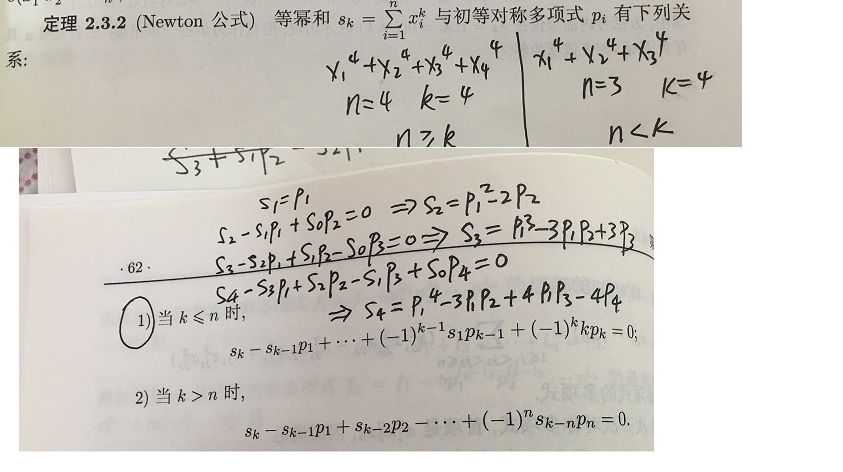 定理 2.3.2 (Newton 公式) 等幂和 s_k = \sum_{i=1}^{n} x_i^k 与初等对称多项式 p_i 有下列关
系:
x_1^4 + x_2^4 + x_3^4 + x_4^4
n=4 k=4
n ≥ k
x_1^4 + x_2^4 + x_3^4
n=3 k=4
n<k
s_1 = p_1
s_2 - s_1p_1 + s_0p_2 = 0 ⇒ s_2 = p_1^2 - 2p_2
s_3 - s_2p_1 + s_1p_2 - s_0p_3 = 0 ⇒ s_3 = p_1^3 - 3p_1p_2 + 3p_3
· 62 ·
s_4 - s_3p_1 + s_2p_2 - s_1p_3 + s_0p_4 = 0
⇒ s_4 = p_1^4 - 3p_1p_2 + 4p_1p_3 - 4p_4
1) 当 k ⩽ n 时,
s_k - s_{k-1}p_1 + ··· + (-1)^{k-1}s_1p_{k-1} + (-1)^k kp_k = 0;
2) 当 k > n 时,
s_k - s_{k-1}p_1 + s_{k-2}p_2 - ··· + (-1)^n s_{k-n}p_n = 0.